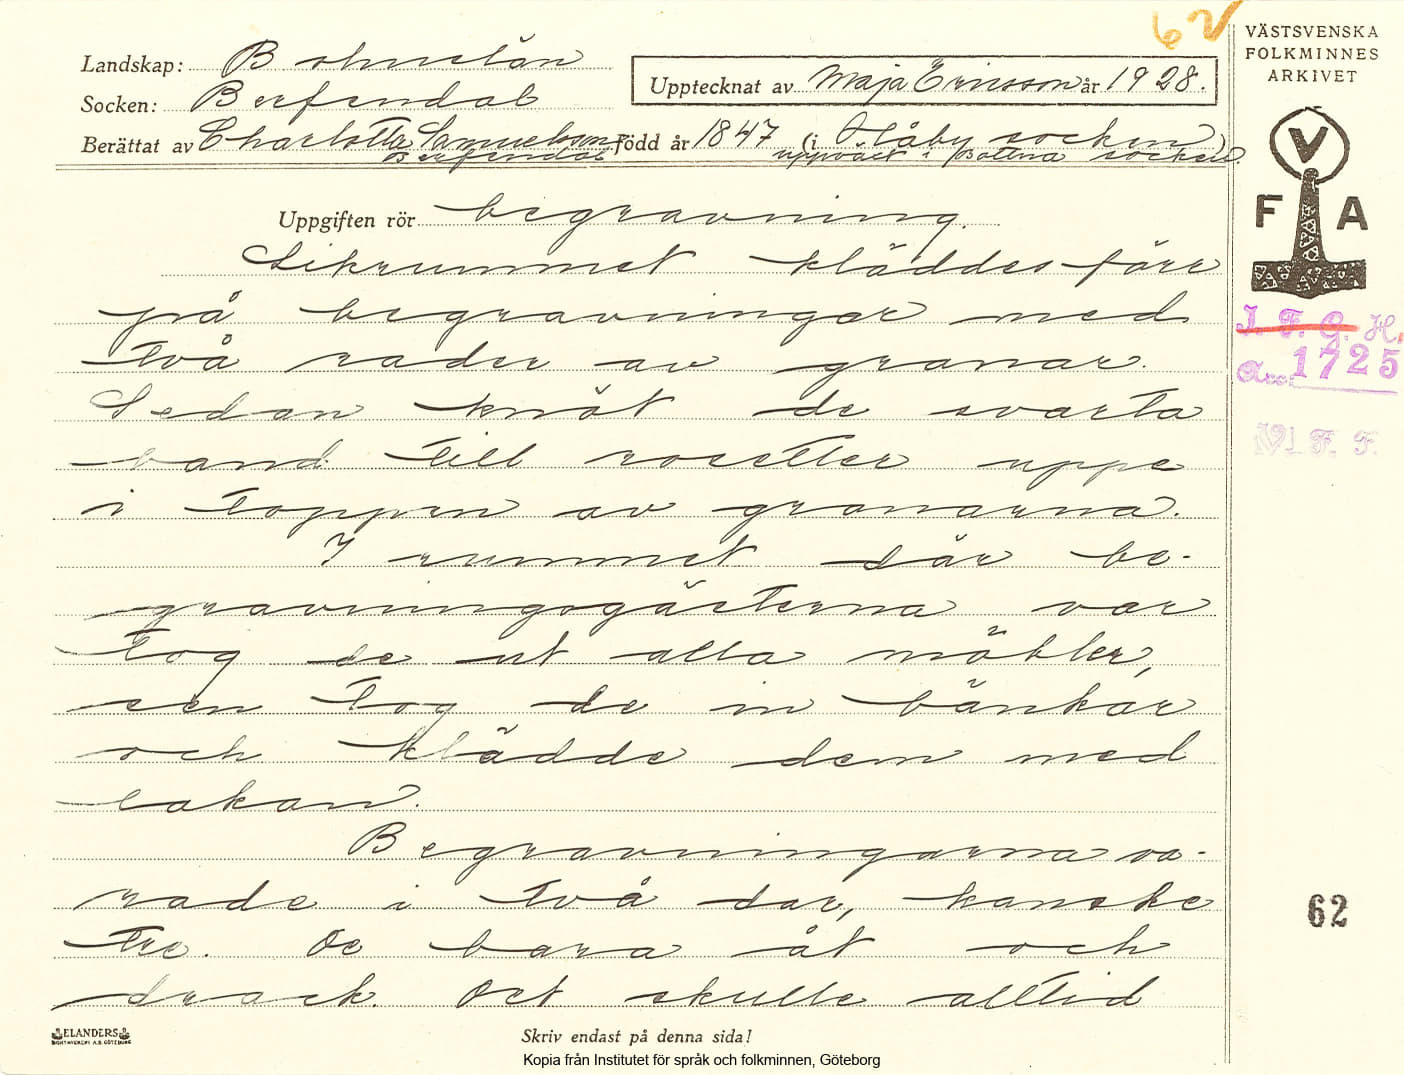 62
VÄSTSVENSKA
FOLKMINNES
ARKIVET
Landskap: Bohuslän
Upptecknat av Maja Ericsson år 1928.
Socken: Berfendal
Berättat av Charlotta Samuelsson född år 1847 (i Håby socken)
Berfendal uppväxt i Bottna socken
V
F A
I. F. G. H.
Acc. 1725
V. F. F.
Uppgiften rör begravning.
Likrummet kläddes förr
på begravningar med
två rader av granar.
Sedan knöt de svarta
band till rosetter uppe
i toppen av granarna.
I rummet där be-
gravningsgästerna var
tog de ut alla möbler,
sen tog de in bänkar
och klädde dem med
lakan.
Begravningarna va-
rade i två dar, kanske
tre. De bara åt och
drack. Det skulle alltid
62
ELANDERS
BOKTRYCKERI A.B. GÖTEBORG
Skriv endast på denna sida!
Kopia från Institutet för språk och folkminnen, Göteborg